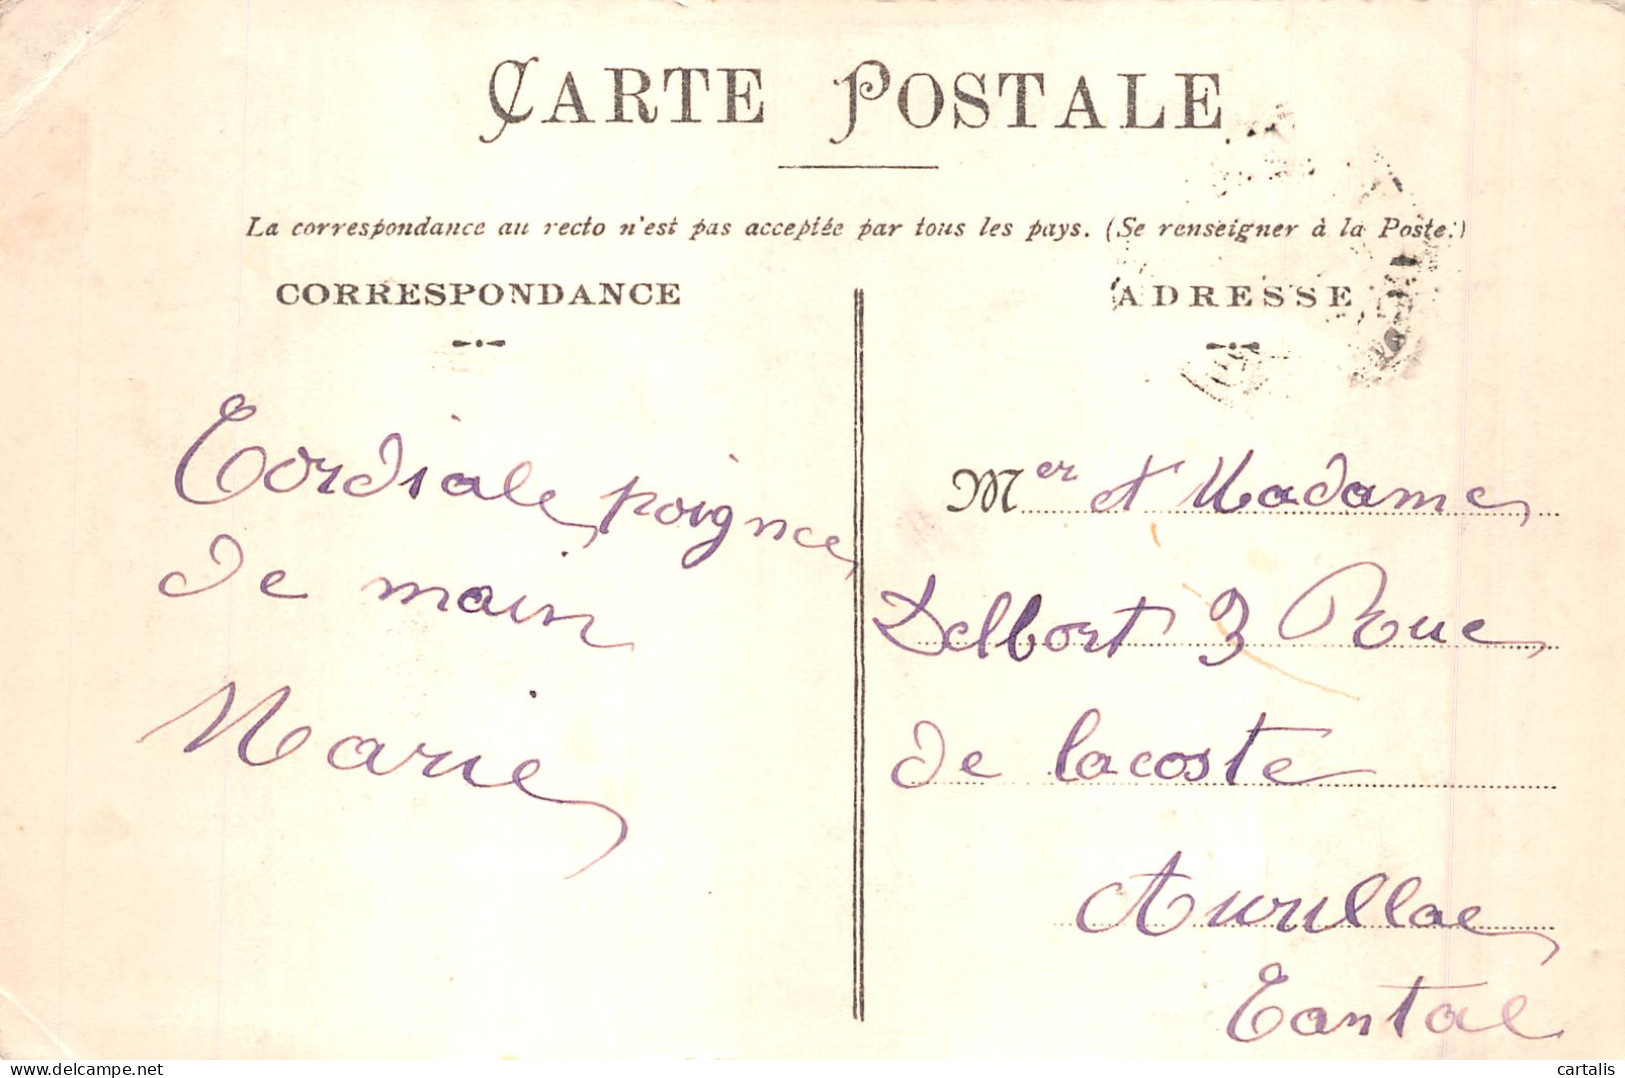 CARTE POSTALE
La correspondance au recto n'est pas acceptée par tous les pays. (Se renseigner à la Poste.)
CORRESPONDANCE
Cordiale poignée
de main
Marie
ADRESSE
Mer et Madame
Delbort 3 Rue
de Lacoste
Aurillac
Cantal
delcampe.net
cartalis